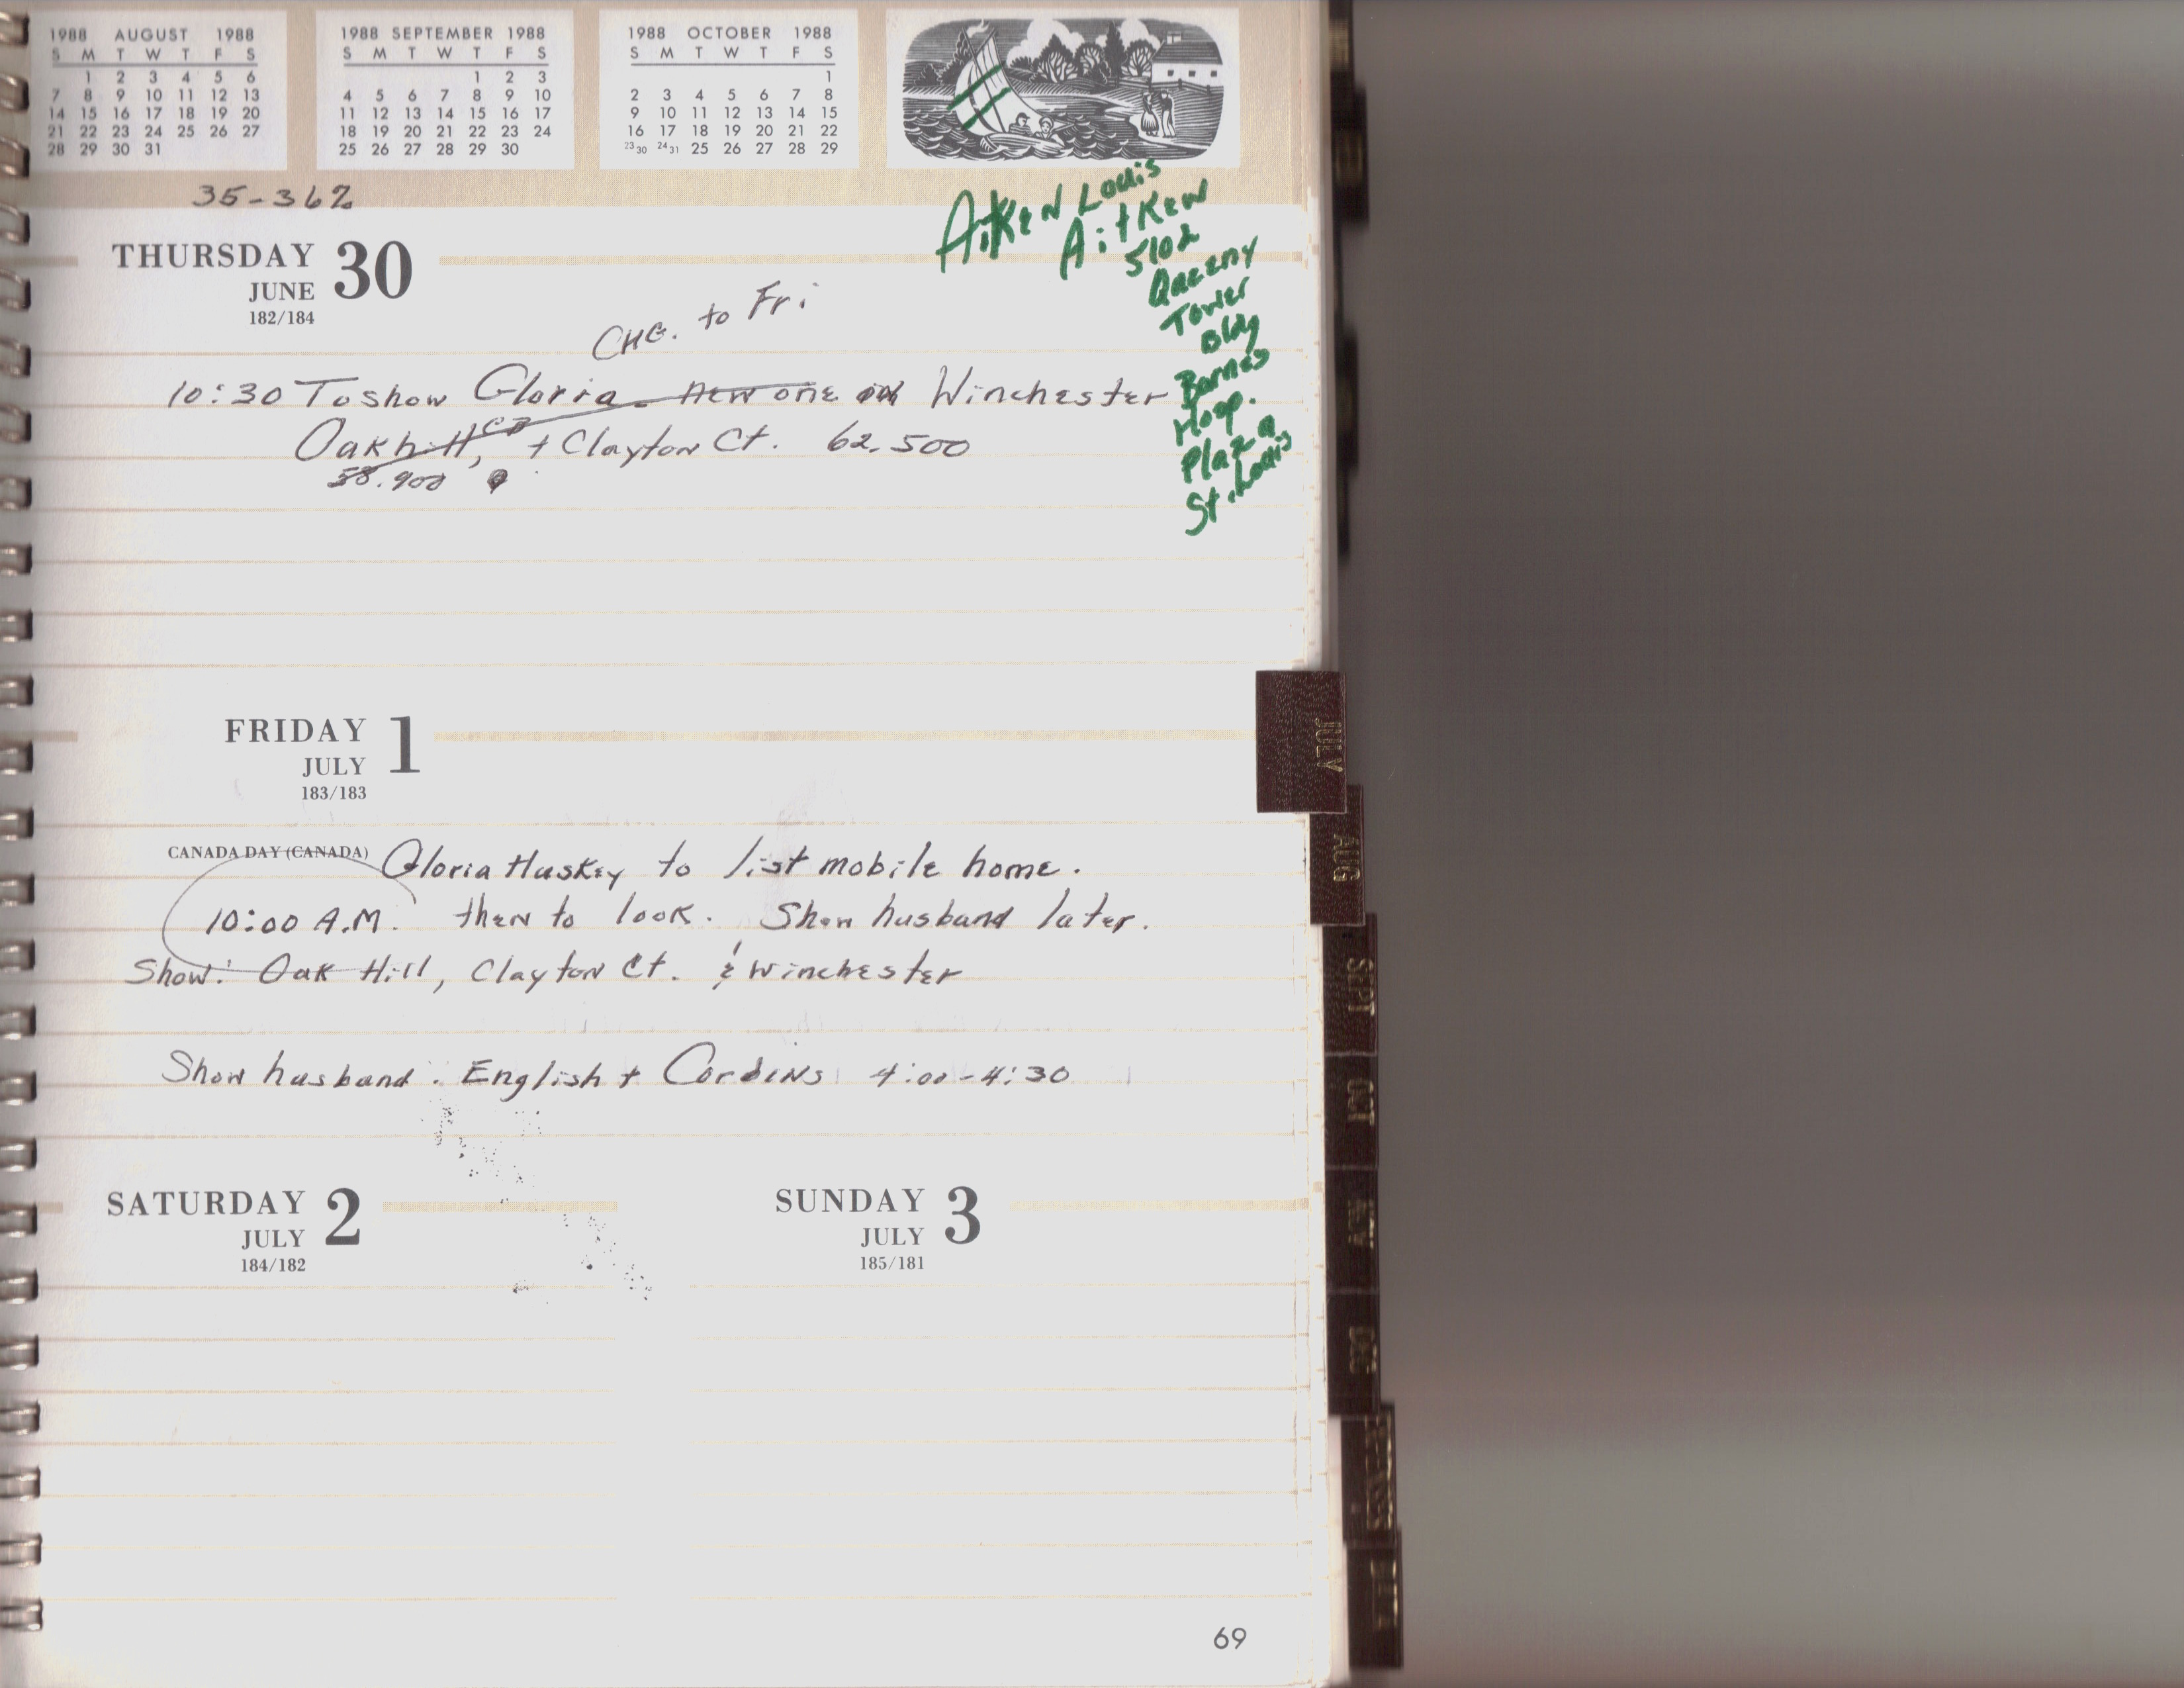 1988 AUGUST 1988
S M T W T F S
1 2 3 4 5 6
7 8 9 10 11 12 13
14 15 16 17 18 19 20
21 22 23 24 25 26 27
28 29 30 31
1988 SEPTEMBER 1988
S M T W T F S
1 2 3
4 5 6 7 8 9 10
11 12 13 14 15 16 17
18 19 20 21 22 23 24
25 26 27 28 29 30
1988 OCTOBER 1988
S M T W T F S
1
2 3 4 5 6 7 8
9 10 11 12 13 14 15
16 17 18 19 20 21 22
23 30 24 31 25 26 27 28 29
35-362
Aitken Louis
Aitken
5102
Queeny
Tower
Bldg
Barnes
Hosp.
Plaza
St. Louis
THURSDAY 30
JUNE
182/184
CHG. to Fri
10:30 To show Gloria. new one in Winchester
Oakhill, + Clayton Ct. 62.500
58.900
FRIDAY 1
JULY
183/183
CANADA DAY (CANADA) Gloria Huskey to list mobile home.
10:00 A.M. then to look. Show husband later.
Show: Oak Hill, Clayton Ct. & Winchester
Show husband. English + Cordins 4:00-4:30
SATURDAY 2
JULY
184/182
SUNDAY 3
JULY
185/181
69
JULY
AUG
SEPT
OCT
NOV
DEC